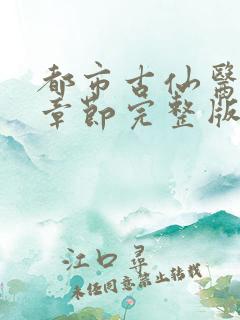 都市古仙醫
章節完整版
江口尋
未经同意禁止转载